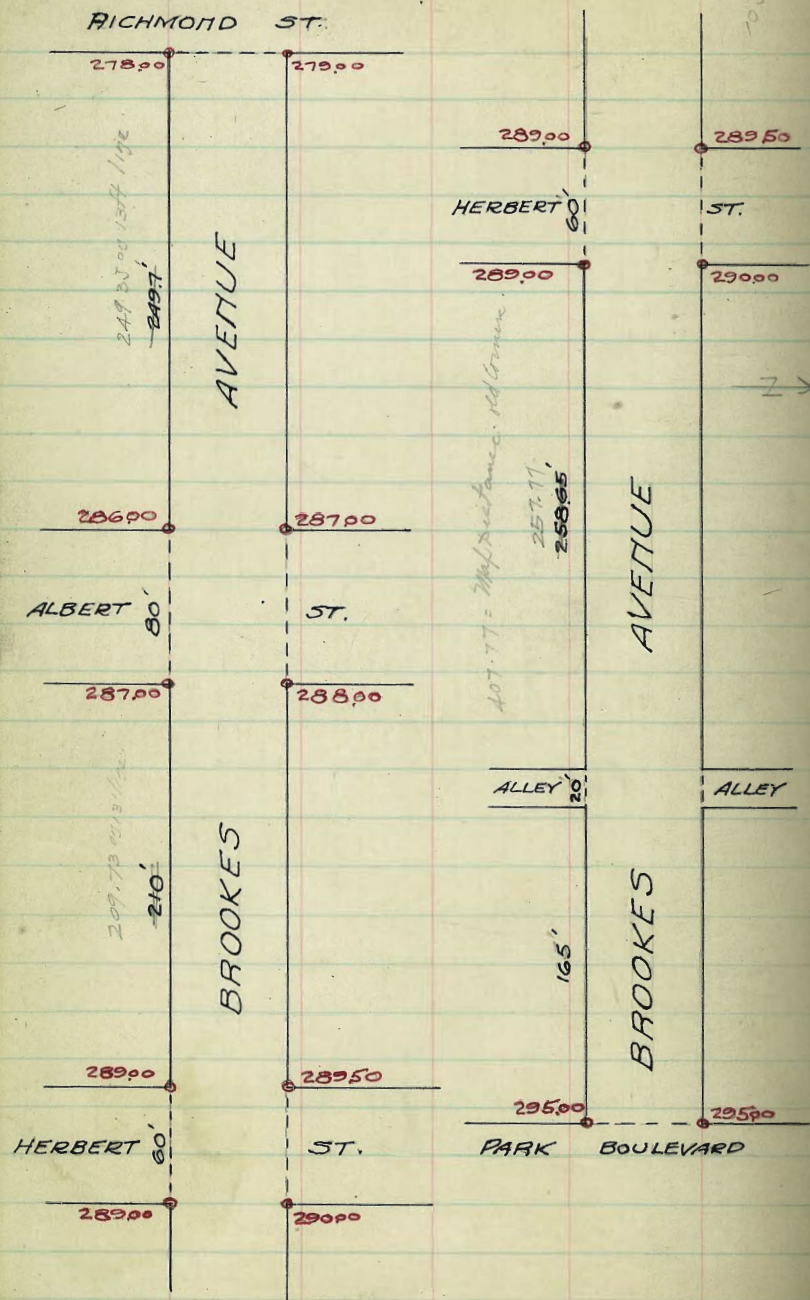 RICHMOND ST.
278.00 279.00
249.7'
AVENUE
286.00 287.00
ALBERT 80' ST.
287.00 288.00
210'
BROOKES
289.00 289.50
HERBERT 60' ST.
289.00 290.00
289.00 289.50
HERBERT 60' ST.
289.00 290.00
407.77 = Map distance. old Corner.
257.77
258.65'
AVENUE
ALLEY 20' ALLEY
165'
BROOKES
295.00 295.00
PARK BOULEVARD